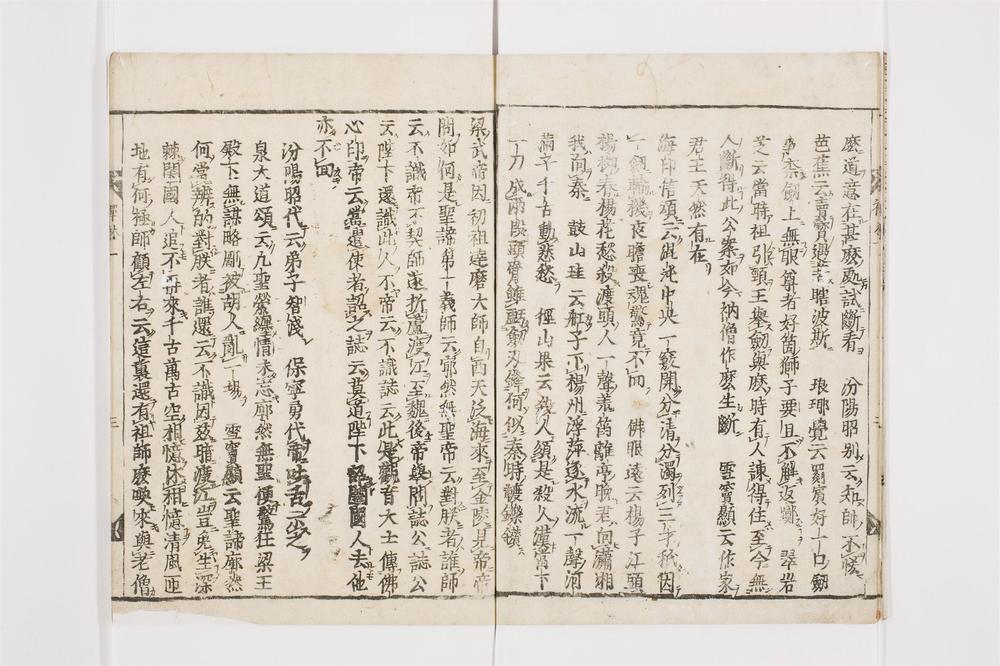 麽道意在甚麽處試斷看　汾陽昭別云知師不悋
芭蕉云賣寶遇著瞎波斯　琅琊覺云罽賓好一口劒
爭柰劒上無眼尊者好箇獅子要且不解返嚬　翠岩
芝云當時祖引頸王擧劒與麽時有人諫得住至今無
人斷得此公案如今衲僧作麽生斷　雪竇顯云作家
君王天然有在
海印信頌云混沌中央一竅開分清分濁列三才秖因
一劒輪機喪膽喪魂驚竟不回　佛眼遠云楊子江頭
楊柳春楊花愁殺渡頭人一聲羗笛離亭晚君向瀟湘
我向秦　鼓山珪云舡子下楊州浮萍逐水流一聲河
滿子千古動悲愁　徑山杲云殺人須是殺人漢當下
一刀成兩段頭臂雖酬劒刃鋒何似秦時𨍏轢鑽
梁武帝因初祖達磨大師自西天泛海來至金陵見帝帝
問如何是聖諦第一義師云廓然無聖帝云對朕者誰師
云不識帝不契師遂折蘆渡江至魏後帝擧問誌公誌公
云陛下還識此人不帝云不識誌云此是觀音大士傳佛
心印帝云當遣使者詔之誌云莫道陛下詔闔國人去他
亦不回
汾陽昭代云弟子智淺　保寧勇代帝吐舌示之
泉大道頌云凡聖縈纏情未忘廓然無聖便驚狂梁王
殿下無謀略剛被胡人亂一場　雪竇顯云聖諦廓然
何當辨的對朕者誰還云不識因玆暗渡江豈免生深
棘闔國人追不再來千古萬古空相憶休相憶清風匝
地有何極師顧左右云這裏還有祖師麽喚來與老僧